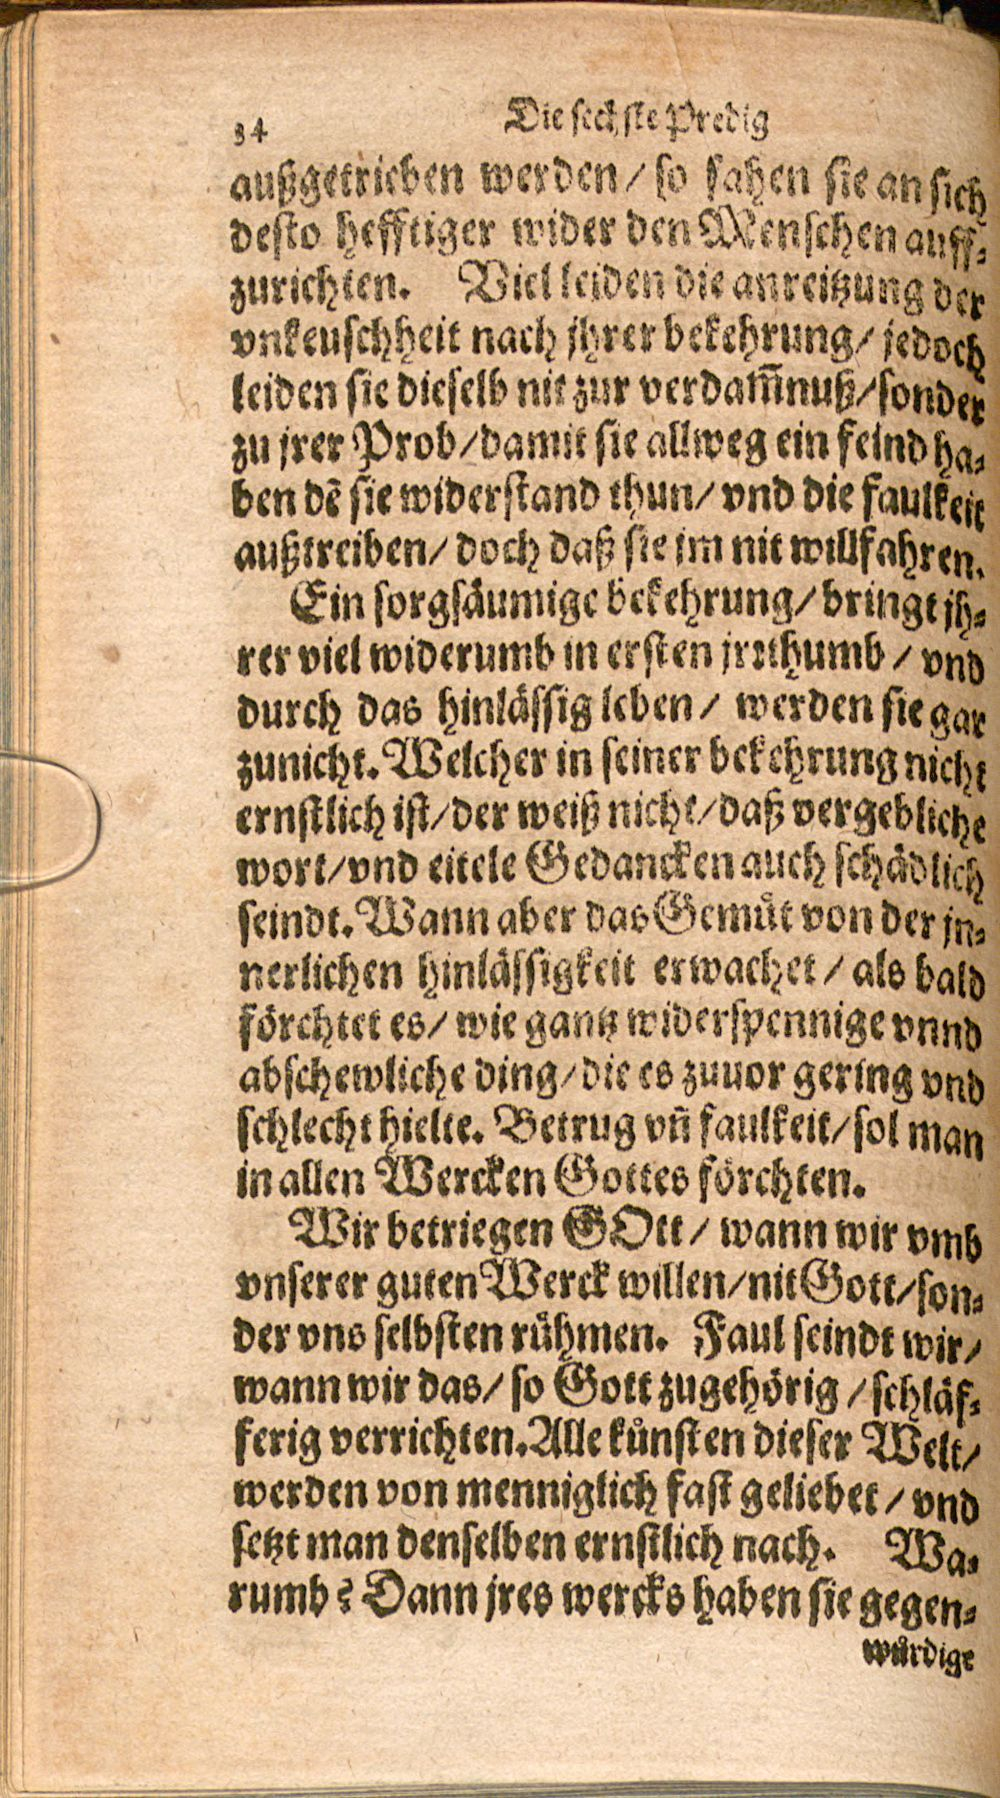 34 Die sechste Predig
außgetrieben werden/ so fahen sie an sich
desto hefftiger wider den Menschen auff-
zurichten. Viel leiden die anreitzung der
vnkeuschheit nach jhrer bekehrung/ jedoch
leiden sie dieselb nit zur verdam̃nuß/ sonder
zu jrer Prob/ damit sie allweg ein feind ha-
ben dẽ sie widerstand thun/ vnd die faulkeit
außtreiben/ doch daß sie jm nit willfahren.
Ein sorgsäumige bekehrung/ bringt jh-
rer viel widerumb in ersten jrrthumb/ vnd
durch das hinlässig leben/ werden sie gar
zunicht. Welcher in seiner bekehrung nicht
ernstlich ist/ der weiß nicht/ daß vergebliche
wort/ vnd eitele Gedancken auch schädlich
seindt. Wann aber das Gemuͤt von der jn-
nerlichen hinlässigkeit erwachet/ als bald
förchtet es/ wie gantz widerspennige vnnd
abschewliche ding/ die es zuuor gering vnd
schlecht hielte. Betrug vñ faulkeit/ sol man
in allen Wercken Gottes förchten.
Wir betriegen GOtt/ wann wir vmb
vnserer guten Werck willen/ nit Gott/ son-
der vns selbsten ruͤhmen. Faul seindt wir/
wann wir das/ so Gott zugehörig/ schläf-
ferig verrichten. Alle kuͤnsten dieser Welt/
werden von menniglich fast geliebet/ vnd
setzt man denselben ernstlich nach. Wa-
rumb? Dann jres wercks haben sie gegen-
wuͤrdige